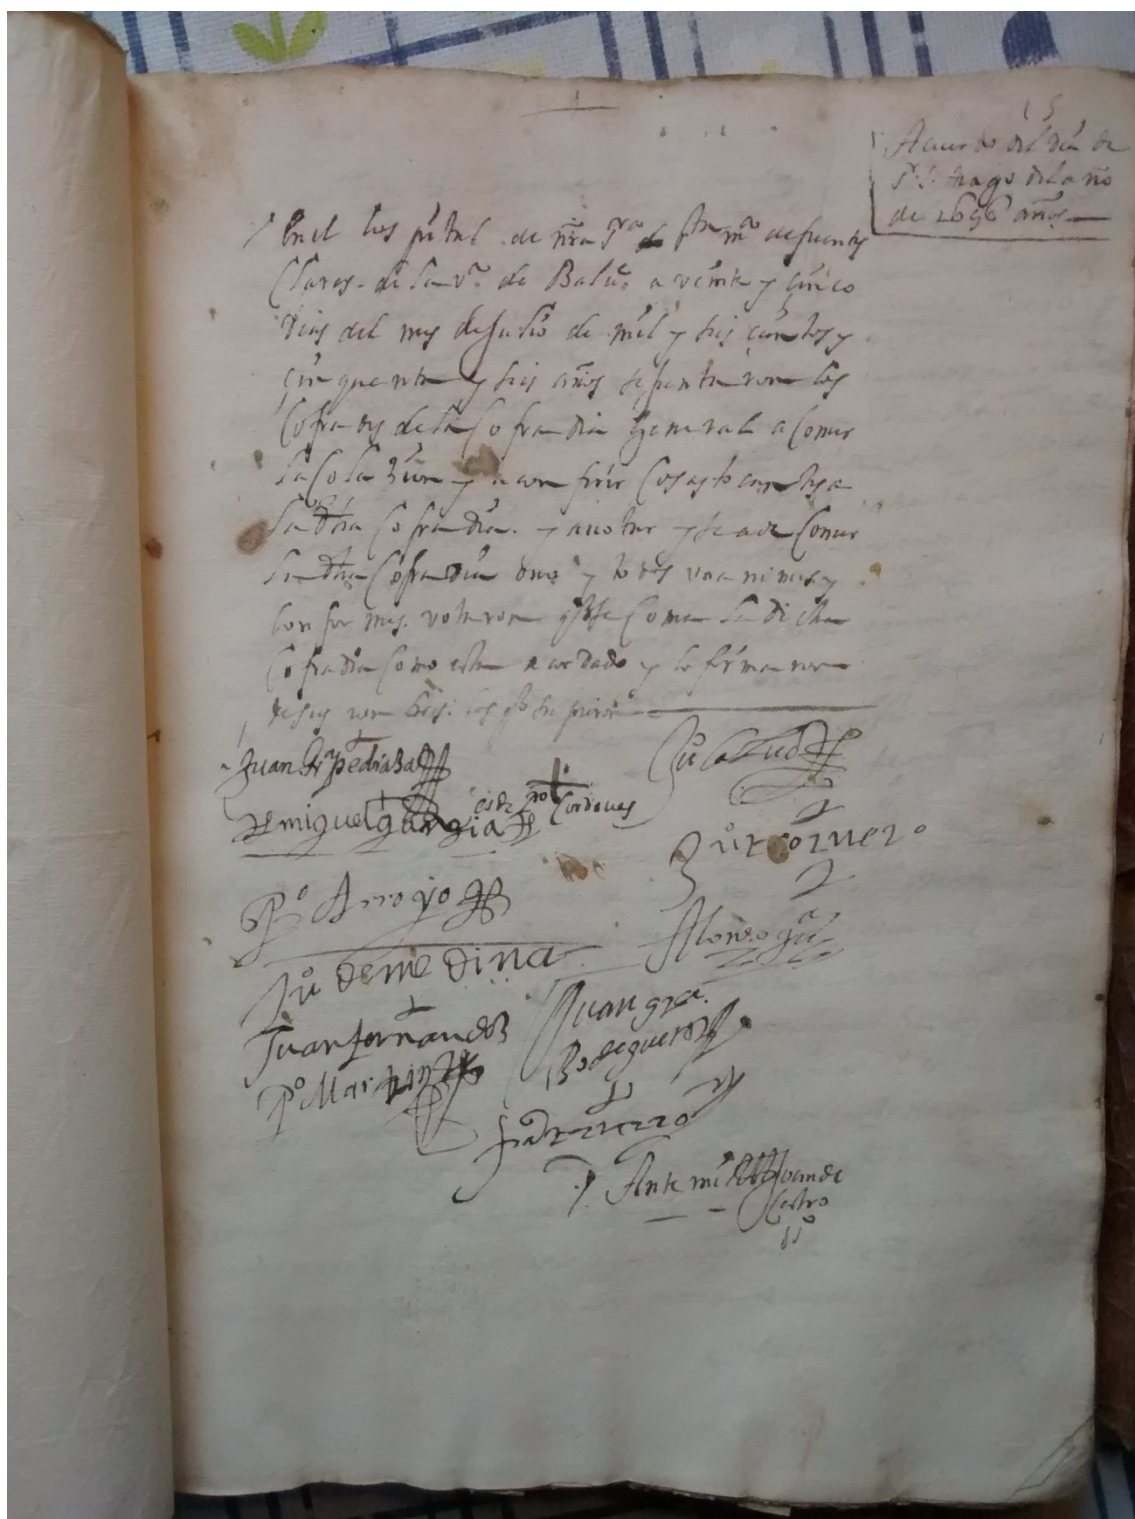 15
Acuerdo del dia de
Sr. S. tiago del año
de 1656 años
En el hospital de nra sra de sta ma de fuentes
Claros de la va de Balua a veinte y çinco
dias del mes de Julio de mil y seis cientos y
çinquenta y seis años se juntaron los
Cofrades de la Cofradia general a Comer
la Colazion y a conferir Cosas tocantes a
la dha Cofradia y a botar si se a de Comer
la dha Cofradia y todos unanimes y
conformes votaron se Coma la dicha
Cofradia Como esta acordado y lo firmaron
de sus nonbres los
Juan Gra pedraza
miguel garzia
es de Cordoves
Po Arroyo
Ju de medina
Juan fernandez
Po Martin
Ju
Ju rromero
Alonso ga
Juan gra
Bodeguero
Ante mi Juan de
Castro
sso